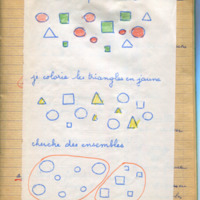 je colorie les triangles en jaune
cherche des ensembles